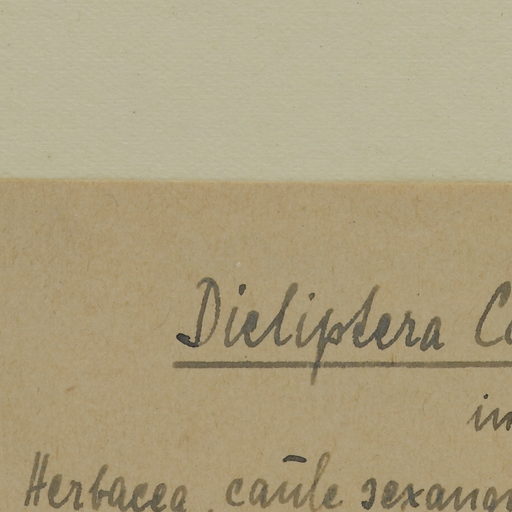 Dicliptera C
in
Herbacea, caūle sexang